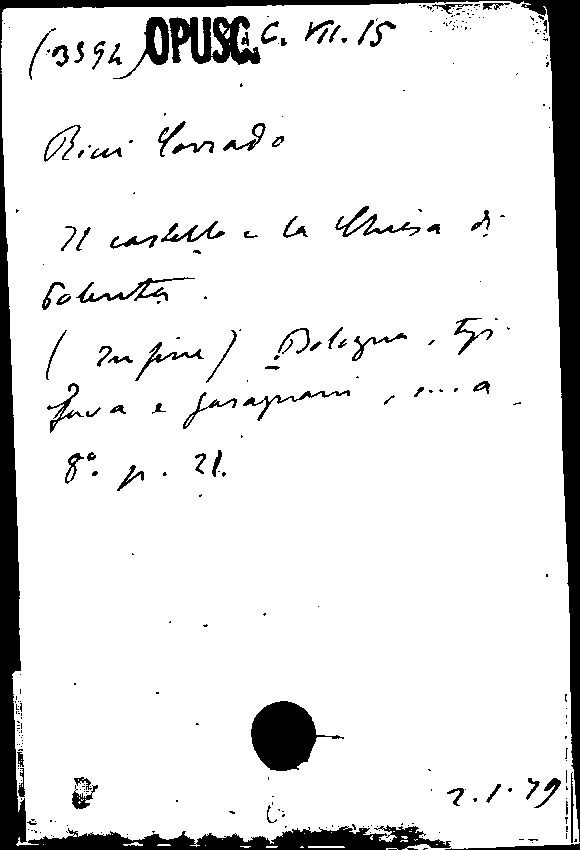 (3592) OPUSC. C. VII. 15
Ricci Corrado
Il castello e la Chiesa di
Polenta.
(In fine) Bologna, tip.
Fava e Garagnani, s.n.a.
8° p. 21.
2.1.79